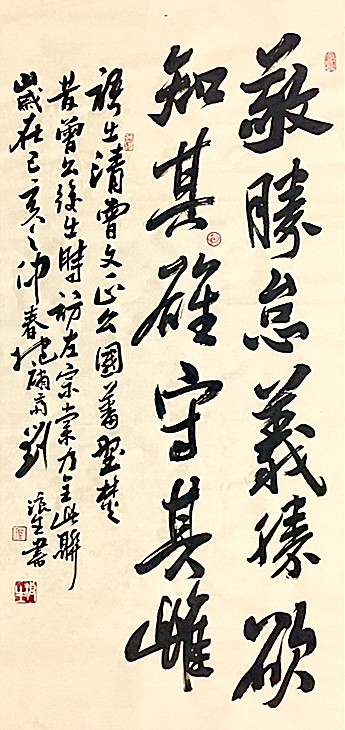 敬勝怠義勝欲
知其雄守其雌
語出清曾文正公國藩
昔曾公復出時訪左宗棠乃書此聯
歲在己亥之仲春齋劉
源生書